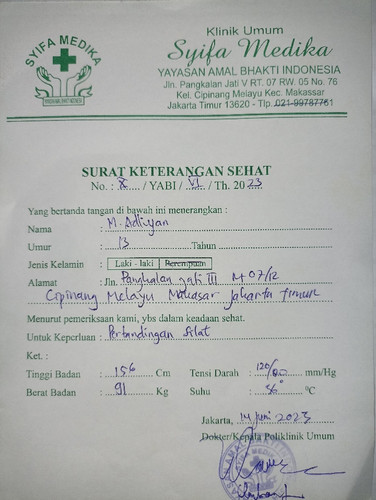 SYIFA MEDIKA
Klinik Umum
Syifa Medika
YAYASAN AMAL BHAKTI INDONESIA
Jln. Pangkalan Jati V RT. 07 RW. 05 No. 76
Kel. Cipinang Melayu Kec. Makassar
Jakarta Timur 13620 - Tlp. 021-99787761
SURAT KETERANGAN SEHAT
No. : X / YABI / VI / Th. 2023
Yang bertanda tangan di bawah ini menerangkan :
Nama : M. Adliyan
Umur : 13 Tahun
Jenis Kelamin : Laki - laki Perempuan
Alamat : Jln. Pangkalan Jati III 07/12
Cipinang Melayu Makasar Jakarta Timur
Menurut pemeriksaan kami, ybs dalam keadaan sehat.
Untuk Keperluan : Pertandingan Silat
Ket. :
Tinggi Badan : 156 Cm Tensi Darah : 120/80 mm/Hg
Berat Badan : 91 Kg Suhu : 36° °C
Jakarta, 14 Juni 2023
Dokter/Kepala Poliklinik Umum